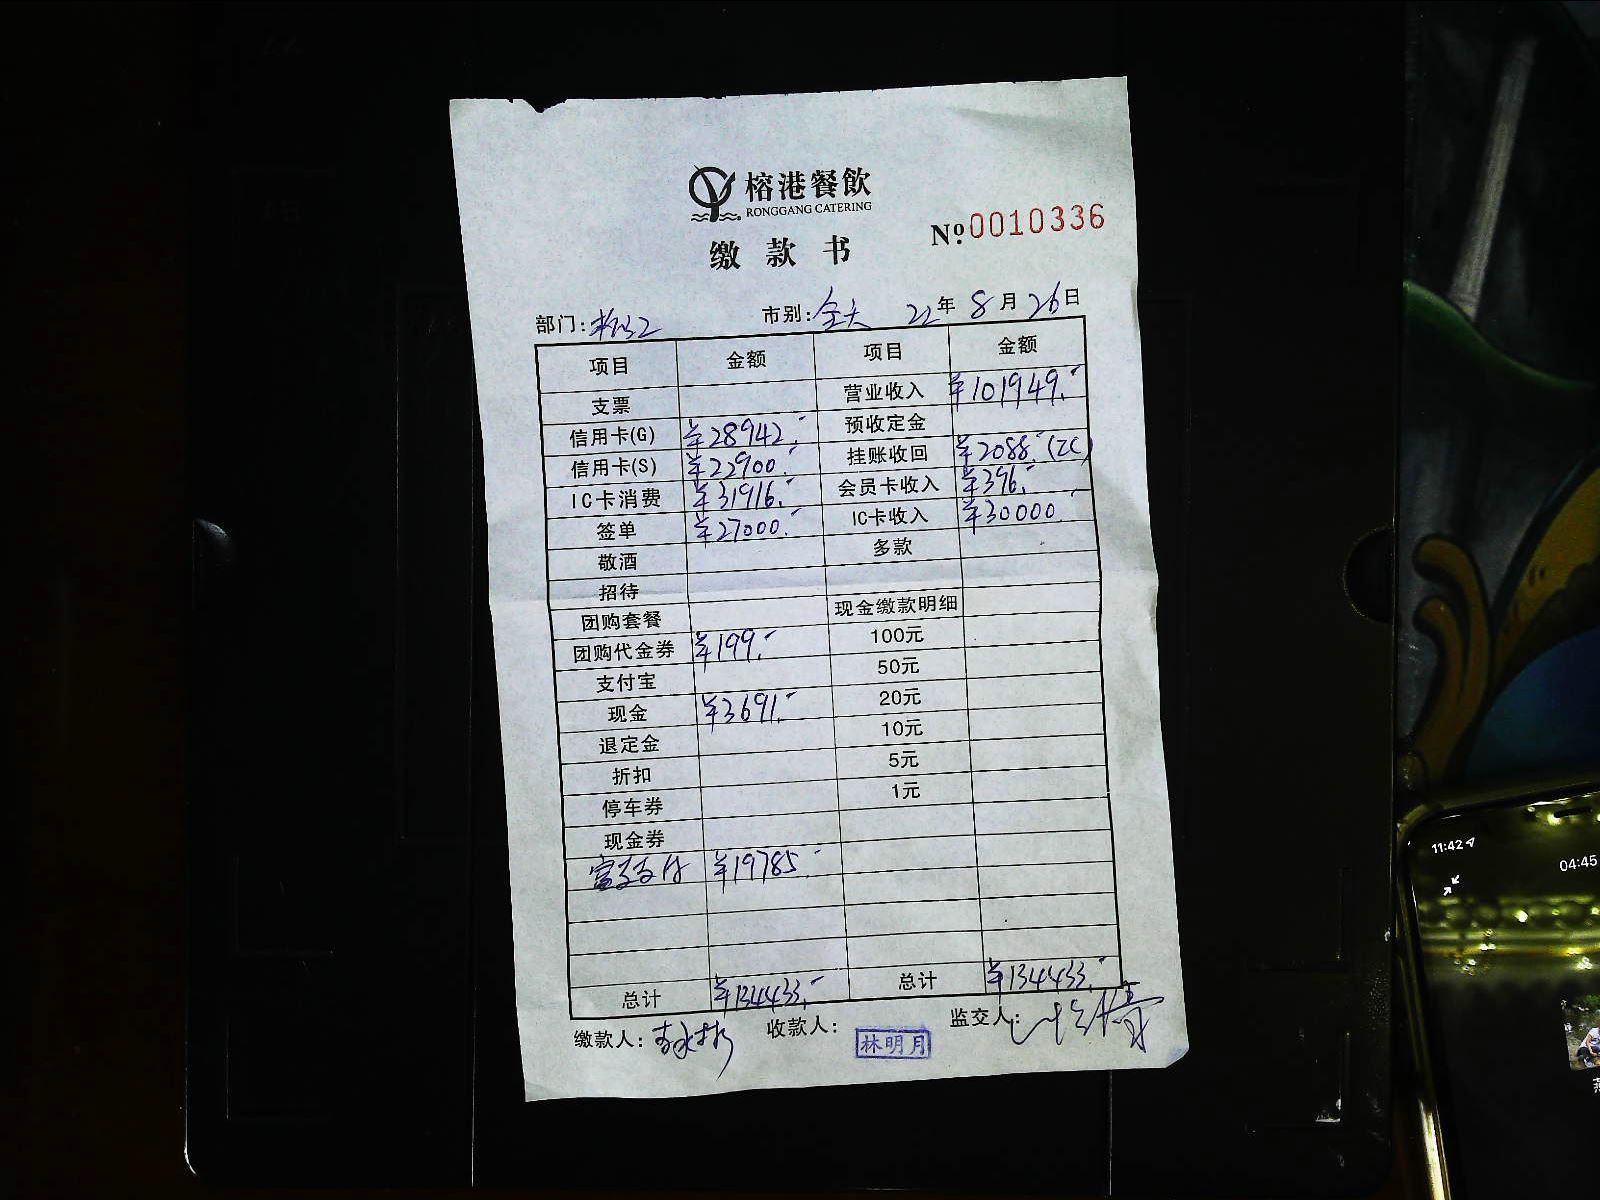 榕港餐飲
RONGGANG CATERING
缴款书
Nº0010336
部门: 市别:全天 22年8月26日
项目 金额 项目 金额
支票 营业收入 ¥101949.-
信用卡(G) ¥28942.- 预收定金
信用卡(S) ¥22900.- 挂账收回 ¥2088.-(ZC)
IC卡消费 ¥31916.- 会员卡收入 ¥396.-
签单 ¥27000.- IC卡收入 ¥30000.-
敬酒 多款
招待
团购套餐 现金缴款明细
团购代金券 ¥199.- 100元
支付宝 50元
现金 ¥3691.- 20元
退定金 10元
折扣 5元
停车券 1元
现金券
¥19785.-
总计 ¥134433.- 总计 ¥134433.-
缴款人: 收款人: 林明月 监交人:
11:42
04:45